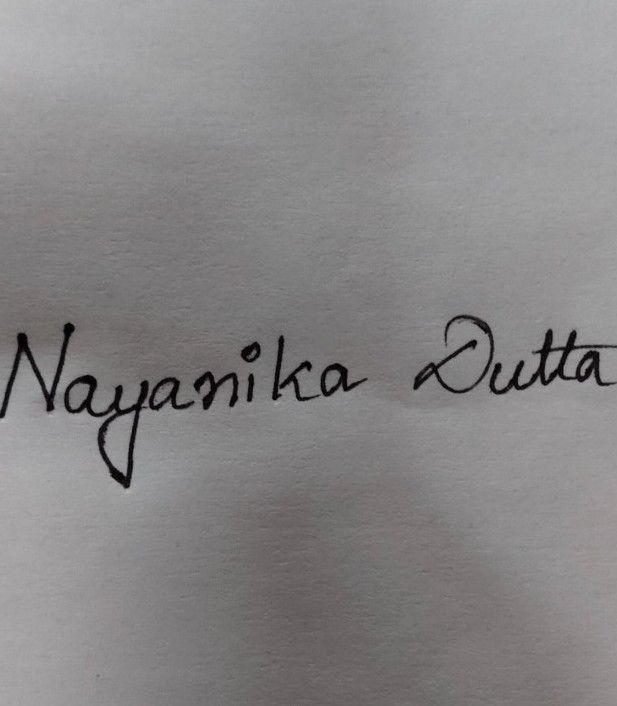 Nayanika Dutta